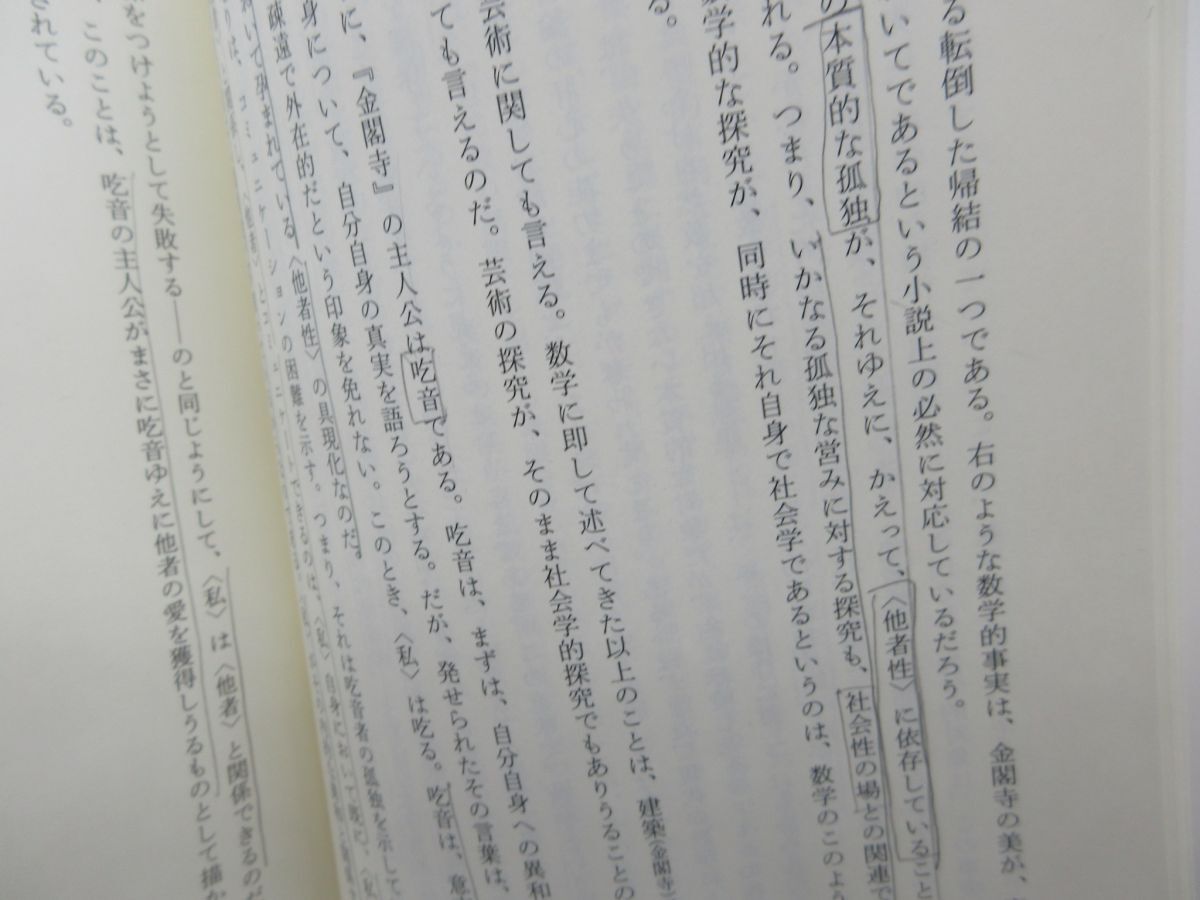 る転倒した帰結の一つである。右のような数学的事実は、金閣寺の美が、
いてであるという小説上の必然に対応しているだろう。
の本質的な孤独が、それゆえに、かえって、〈他者性〉に依存していること
れる。つまり、いかなる孤独な営みに対する探究も、社会性の場との関連で
数学的な探究が、同時にそれ自身で社会学であるというのは、数学のこのよう
る。
芸術に関しても言える。数学に即して述べてきた以上のことは、建築(金閣寺)
ても言えるのだ。芸術の探究が、そのまま社会学的探究でもありうることの
に、『金閣寺』の主人公は吃音である。吃音は、まずは、自分自身への異和
身について、自分自身の真実を語ろうとする。だが、発せられたその言葉は、
疎遠で外在的だという印象を免れない。このとき、〈私〉は吃る。吃音は、意
おいて孕まれている〈他者性〉の具現化なのだ。
は、コミュニケーションの困難を示す。つまり、それは吃音者の孤独を示して
とコミュニケートできるのは、〈私〉自身において既に、〈私
をつけようとして失敗する——のと同じようにして、〈私〉は〈他者〉と関係できるのだ
、このことは、吃音の主人公がまさに吃音ゆえに他者の愛を獲得しうるものとして描か
されている。